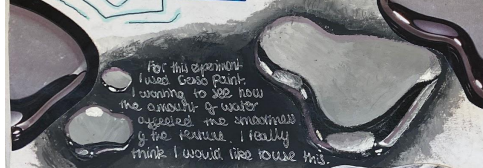 For this experiment
I used Gesso Paint.
I wanning to see how
the amount of water
affected the smoothness
of the texture. I really
think I would like to use this.